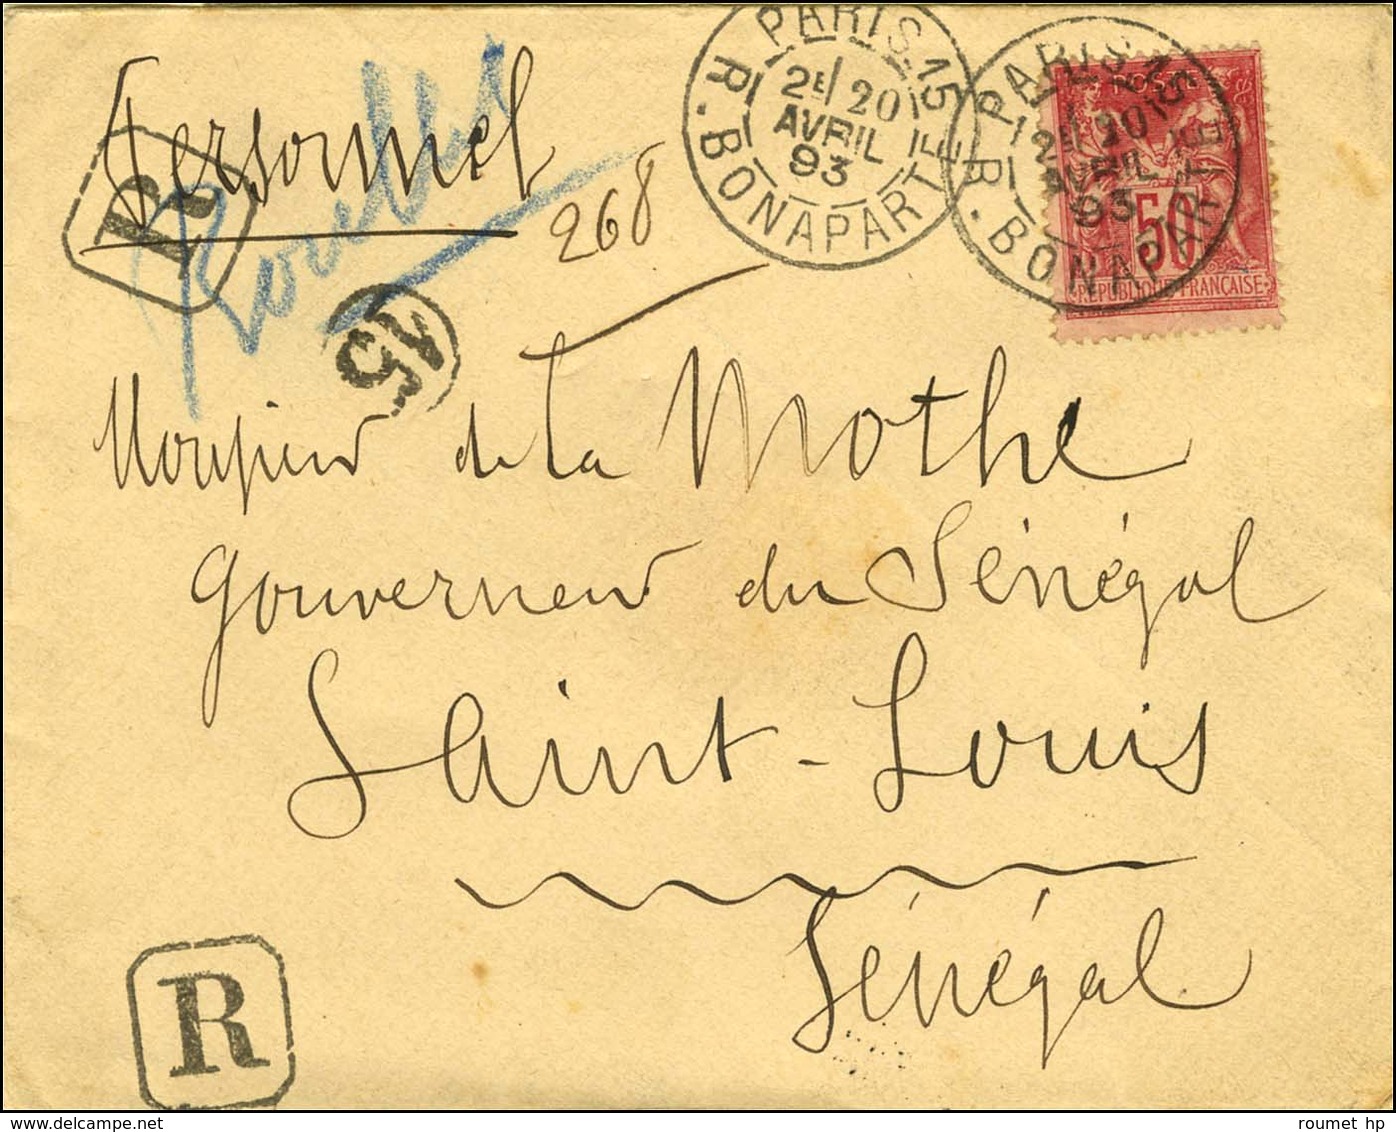 Personnel
R
268
15
PARIS 15
2E/20
AVRIL
93
R. BONAPARTE
PARIS 15
2E/20
AVRIL
93
R. BONAPARTE
POSTES
50
REPUBLIQUE FRANCAISE
Monsieur de la Mothe
Gouverneur du Sénégal
Saint-Louis
Sénégal
R
roumet hp